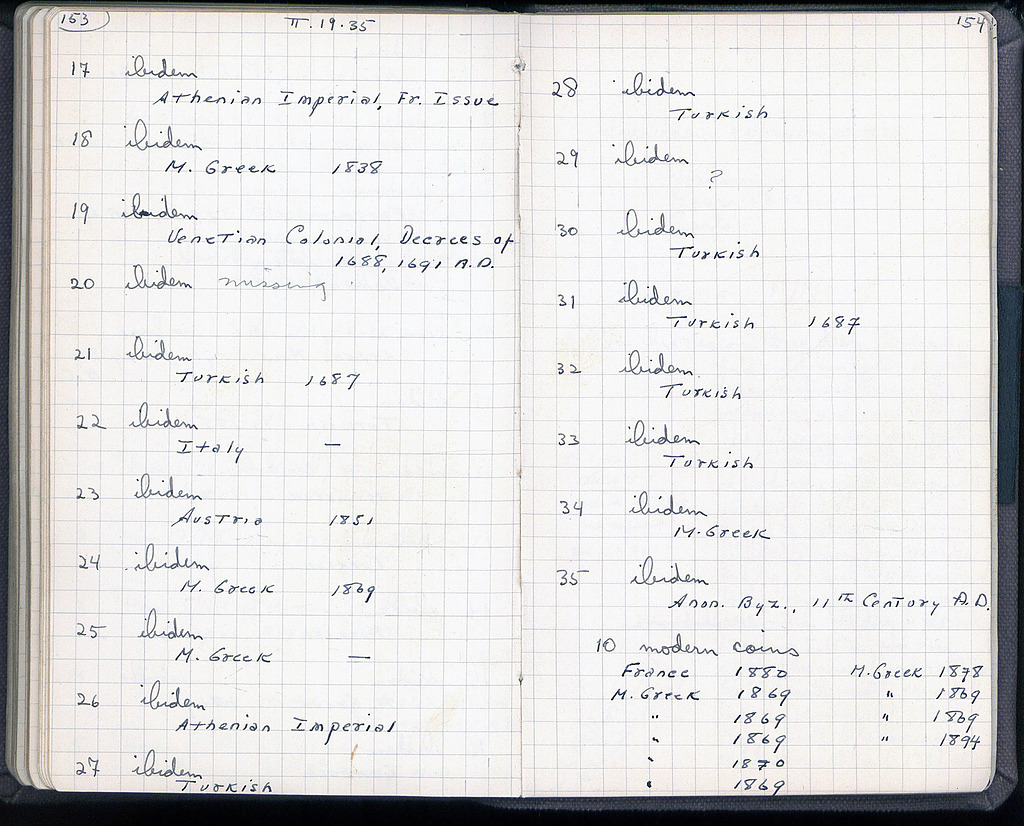 153
II.19.35
17 ibidem
Athenian Imperial, Fr. Issue
18 ibidem
M. Greek 1838
19 ibidem
Venetian Colonial, Decrees of
1688, 1691 A.D.
20 ibidem missing
21 ibidem
Turkish 1687
22 ibidem
Italy —
23 ibidem
Austria 1851
24 ibidem
M. Greek 1869
25 ibidem
M. Greek —
26 ibidem
Athenian Imperial
27 ibidem
Turkish
154
28 ibidem
Turkish
29 ibidem
?
30 ibidem
Turkish
31 ibidem
Turkish 1687
32 ibidem
Turkish
33 ibidem
Turkish
34 ibidem
M. Greek
35 ibidem
Anon. Byz., 11th Century A.D.
10 modern coins
France 1880 M. Greek 1878
M. Greek 1869 " 1869
" 1869 " 1869
" 1869 " 1894
" 1870
" 1869